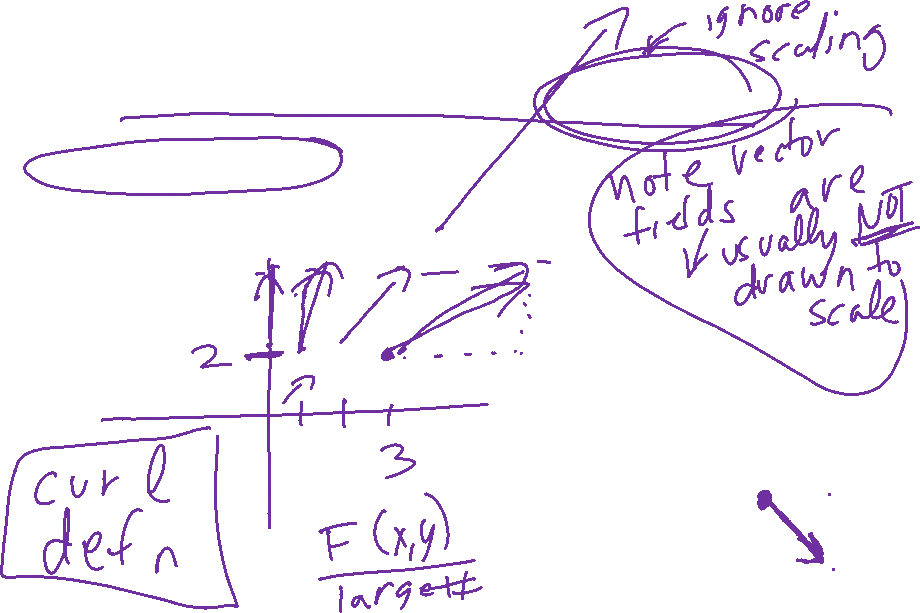 ignore
scaling
note vector
fields are
usually NOT
drawn to
scale
2
3
curl
defn
F(x,y)
large#